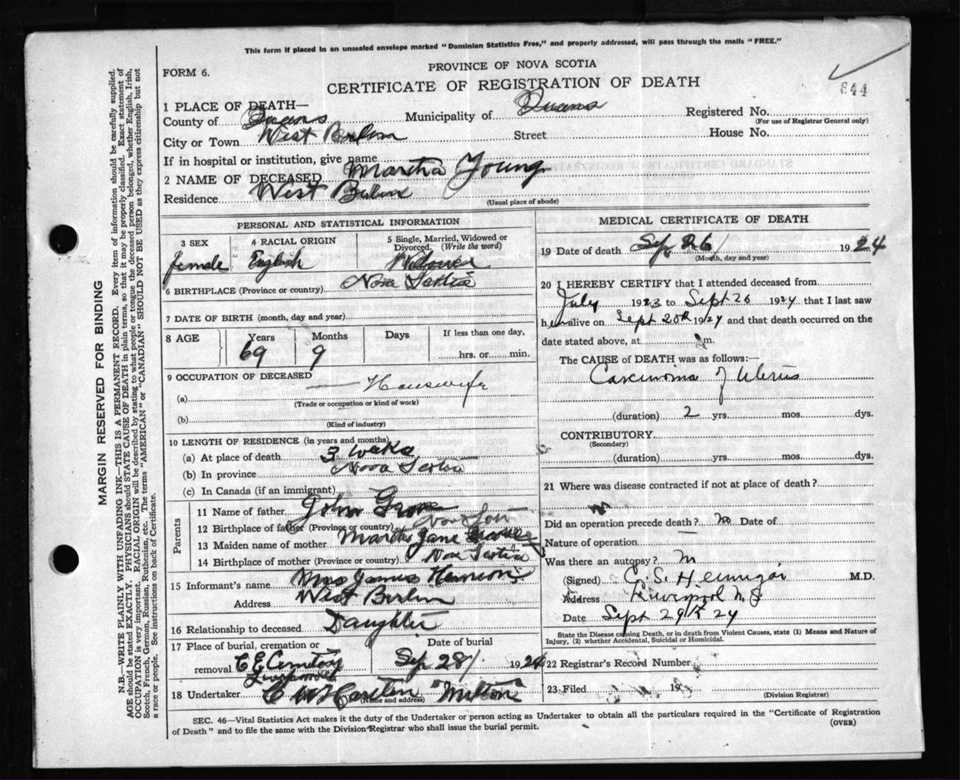 This form if placed in an unsealed envelope marked "Dominion Statistics Free," and properly addressed, will pass through the mails "FREE."
PROVINCE OF NOVA SCOTIA
FORM 6.
CERTIFICATE OF REGISTRATION OF DEATH
844
1 PLACE OF DEATH—
County of Queens Municipality of Queens Registered No.
(For use of Registrar General only)
City or Town West Berlin Street House No.
If in hospital or institution, give name
2 NAME OF DECEASED Martha Young
Residence West Berlin
(Usual place of abode)
PERSONAL AND STATISTICAL INFORMATION
3 SEX 4 RACIAL ORIGIN 5 Single, Married, Widowed or Divorced. (Write the word)
female English Widower
6 BIRTHPLACE (Province or country) Nova Scotia
7 DATE OF BIRTH (month, day and year)
8 AGE Years Months Days If less than one day,
69 9 hrs. or min.
9 OCCUPATION OF DECEASED
(a) Housewife
(Trade or occupation or kind of work)
(b)
(Kind of industry)
10 LENGTH OF RESIDENCE (in years and months)
(a) At place of death 3 weeks
(b) In province Nova Scotia
(c) In Canada (if an immigrant)
Parents
11 Name of father John
12 Birthplace of father (Province or country) Nova Scotia
13 Maiden name of mother Martha Jane
14 Birthplace of mother (Province or country) Nova Scotia
15 Informant's name Mrs James
Address West Berlin
16 Relationship to deceased Daughter
17 Place of burial, cremation or removal Date of burial
C E Cemetery Liverpool Sep 28 1924
18 Undertaker C W Milton
(Name and address)
MEDICAL CERTIFICATE OF DEATH
19 Date of death Sep 26 1924
(Month, day and year)
20 I HEREBY CERTIFY that I attended deceased from
July 1923 to Sept 26 1924 that I last saw
her alive on Sept 20th 1924 and that death occurred on the
date stated above, at m.
The CAUSE of DEATH was as follows:
Carcinoma of Uterus
(duration) 2 yrs. mos. dys.
CONTRIBUTORY
(Secondary)
(duration) yrs. mos. dys.
21 Where was disease contracted if not at place of death?
Did an operation precede death? no Date of
Nature of operation
Was there an autopsy? no
(Signed) C. S. Hennigar M.D.
Address Liverpool N S
Date Sept 29th 24
State the Disease causing Death, or in death from Violent Causes, state (1) Means and Nature of Injury, (2) whether Accidental, Suicidal or Homicidal.
22 Registrar's Record Number
23 Filed 19
(Division Registrar)
SEC. 46—Vital Statistics Act makes it the duty of the Undertaker or person acting as Undertaker to obtain all the particulars required in the "Certificate of Registration
of Death" and to file the same with the Division Registrar who shall issue the burial permit.
(OVER)
MARGIN RESERVED FOR BINDING
N.B.—WRITE PLAINLY WITH UNFADING INK—THIS IS A PERMANENT RECORD. Every item of information should be carefully supplied.
AGE should be stated EXACTLY. PHYSICIANS should STATE CAUSE OF DEATH in plain terms, so that it may be properly classified. Exact statement of
OCCUPATION is very important. RACIAL ORIGIN will be described by stating to what people or tongue the deceased person belonged, whether English, Irish,
Scotch, French, German, Russian, Ruthenian, etc. The terms "AMERICAN" or "CANADIAN" SHOULD NOT BE USED as they express citizenship but not
a race or people. See instructions on back of Certificate.